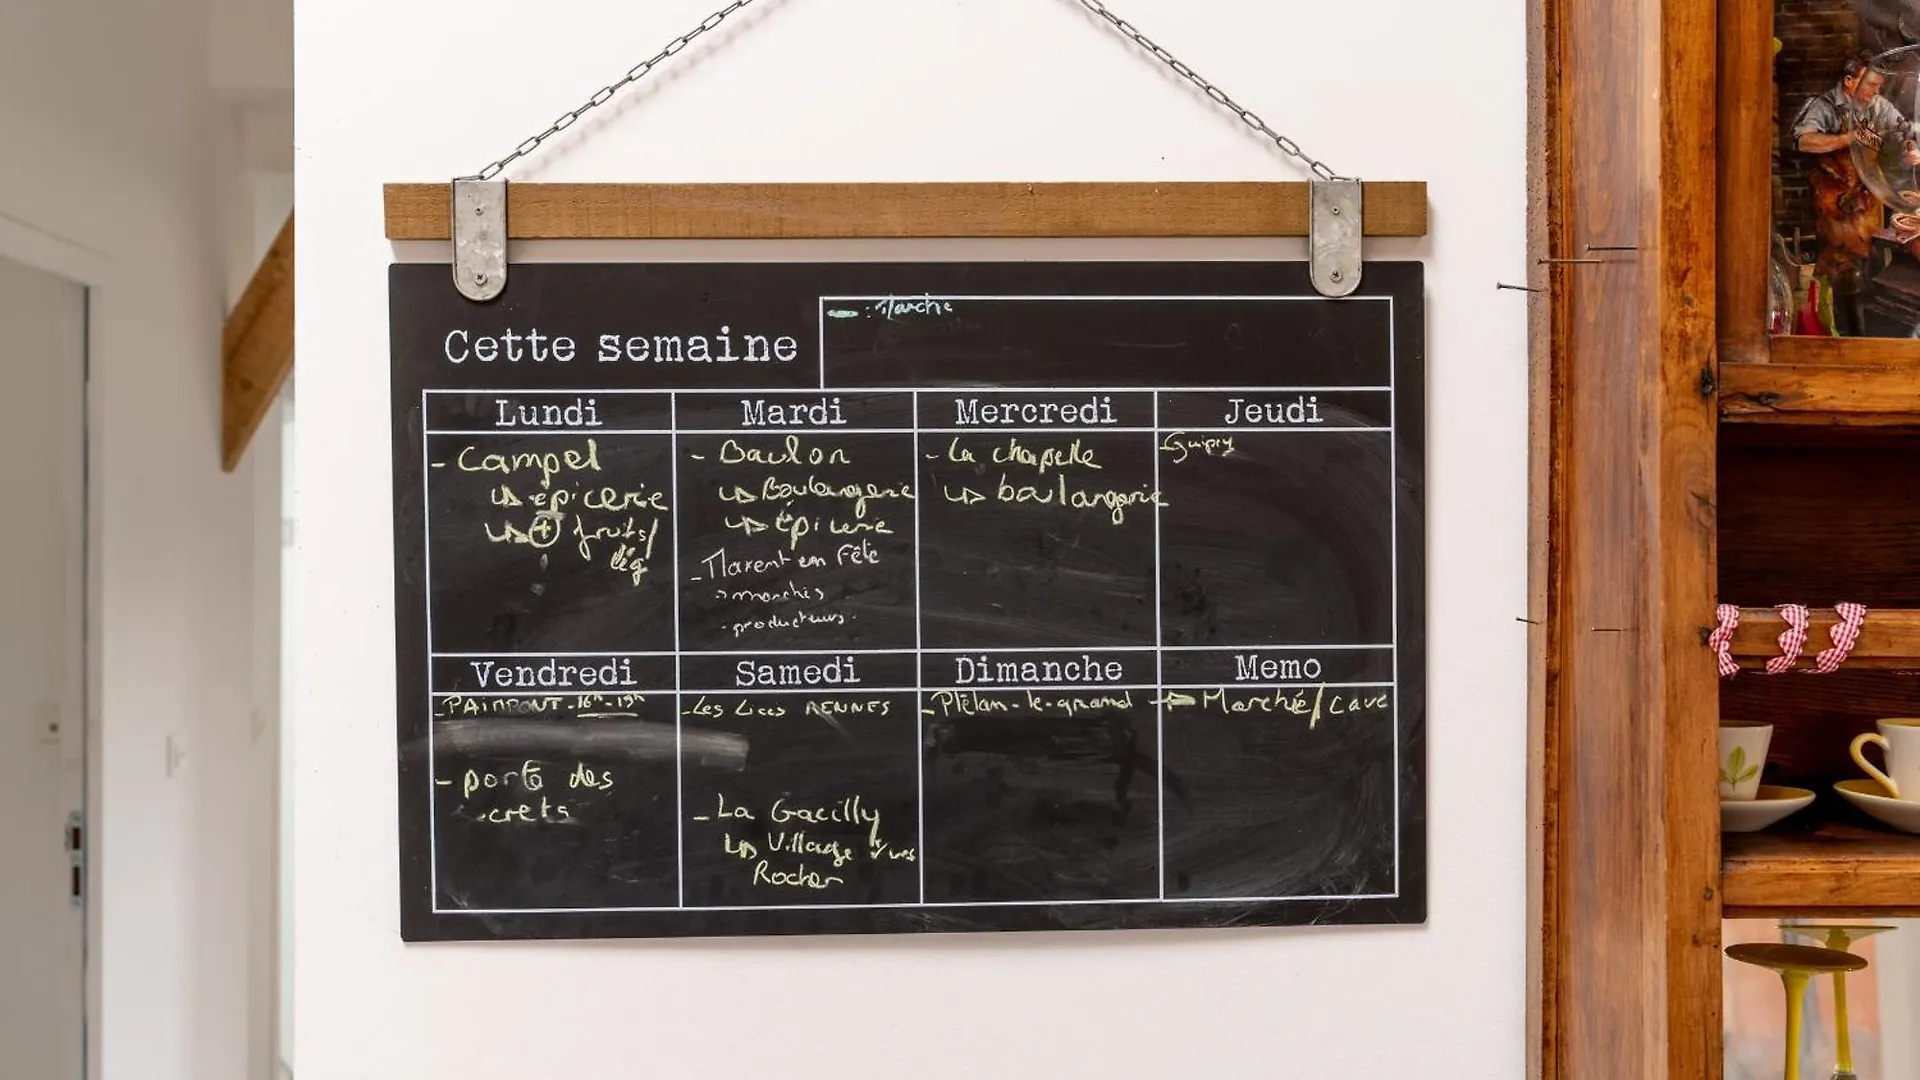 - : Marché
Cette semaine
Lundi
- Campel
↳ épicerie
↳ + fruits/
lég
Mardi
- Baulon
↳ Boulangerie
↳ épicerie
- en Fête
marchés
producteurs.
Mercredi
- La chapelle
↳ boulangerie
Jeudi
- Guipry
Vendredi
- PAIMPONT - 16h - 19h
- porte des
crets
Samedi
- Les Lices RENNES
- La Gacilly
↳ Village Yves
Rocher
Dimanche
- Plélan-le-grand
Memo
Marché/cave